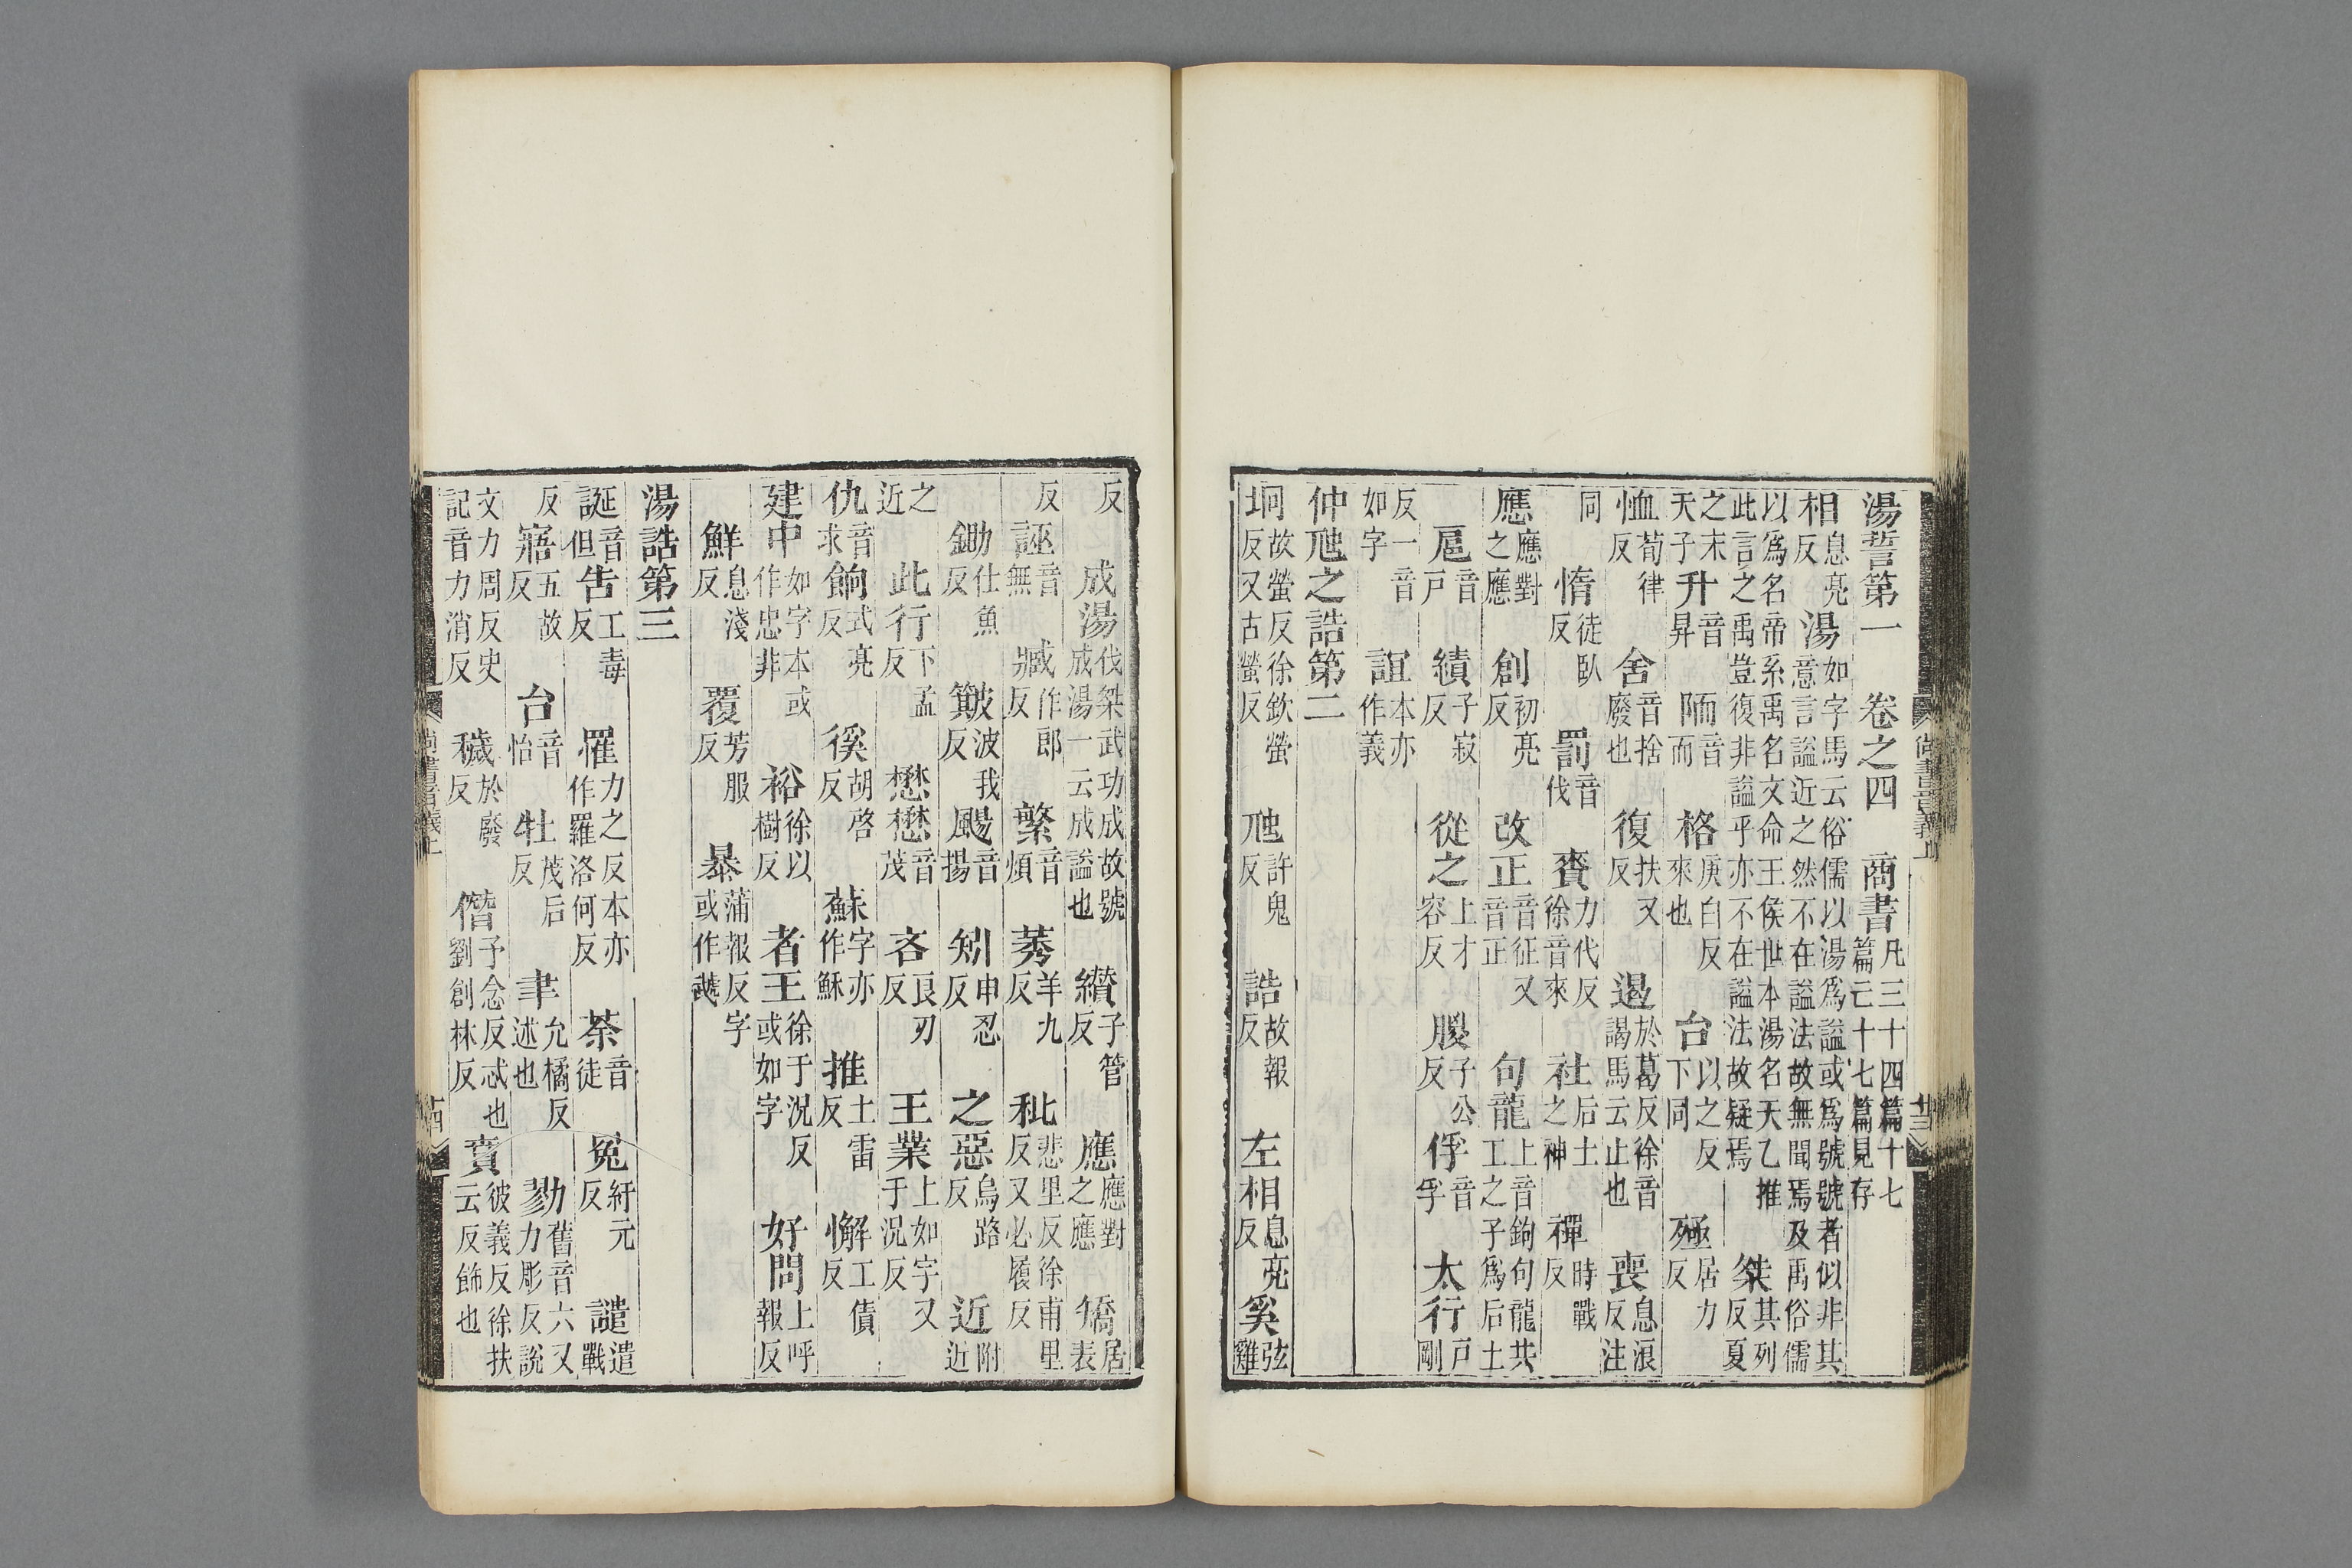 湯誓第一 卷之四 商書 凡三十四篇十七篇亡十七篇見存
相息亮反 湯如字馬云俗儒以湯爲謚或爲號號者似非其意言謚近之然不在謚法故無聞焉及禹俗儒
以爲名帝系禹名文命王侯世本湯名天乙推此言之禹豈復非謚乎亦不在謚法故疑焉 桀其列反夏
之末天子 升音昇 陑音而 格庚白反來也 台以之反下同 殛居力反
恤荀律反 舍音捨廢也 復扶又反 遏於葛反徐音謁馬云止也 喪息浪反注
同 惰徒臥反 罰音伐 賚力代反徐音來 社后土之神 禪時戰反
應應對之應 創初亮反 改正音征又音正 句龍上音鉤句龍共工之子爲后土
扈音戶 績子寂反 從之上才容反 朡子公反 俘音孚 太行戶剛
反一音如字 誼本亦作義
仲虺之誥第二
坰故螢反徐欽螢反又古螢反 虺許鬼反 誥故報反 左相息亮反 奚弦雞
尚書音義上 十三
反 成湯伐桀武功成故號成湯一云成謚也 纘子管反 應應對之應 矯居表
反 誣音無 臧作郎反 繁音煩 莠羊九反 秕悲里反徐甫里反又必履反
鋤仕魚反 簸波我反 颺音揚 矧申忍反 之惡烏路反 近附近
之近 此行下孟反 懋懋音茂 吝良刃反 王業上如字又于況反
仇音求 餉式亮反 徯胡啓反 蘇字亦作穌 推土雷反 懈工債反
建中如字本或作忠非 裕徐以樹反 者王徐于況反或如字 好問上呼報反
鮮息淺反 覆芳服反 暴蒲報反字或作虣
湯誥第三
誕音但 告工毒反 罹力之反本亦作羅洛何反 荼音徒 冤紆元反 譴遣戰
反 寤五故反 台音怡 牡茂后反 聿允橘反述也 勠舊音六又力彫反說
文力周反史記音力消反 穢於廢反 僭子念反忒也劉創林反 賁彼義反徐扶云反飾也
尚書音義上 十四